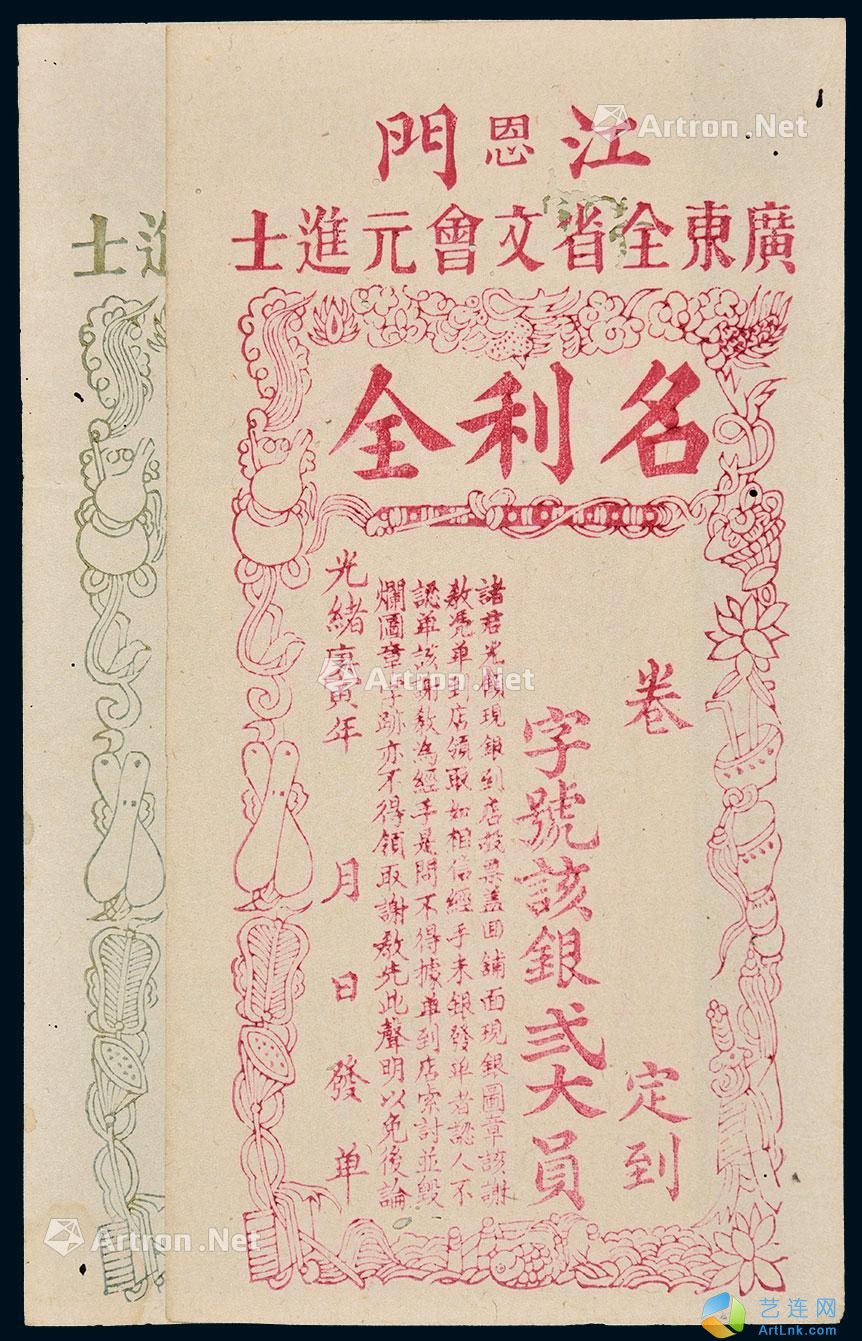 江恩門
廣東全省文會元進士
名利全
卷 定到
字號該銀弍大員
諸君光顧現銀到店投票蓋回舖面現銀圖章該謝
教憑單到店領取如相信經手未銀發單者認人不
認單該謝教為經手是問不得據單到店索討並毀
爛圖章字跡亦不得領取謝教先此聲明以免後論
光緒庚寅年 月 日 發單
進士
Artron.Net
Artron.Net
Artron.Net
艺连网
ArtLnk.com